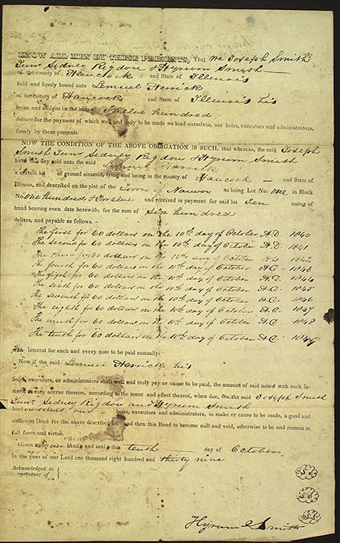 KNOW ALL MEN BY THESE PRESENTS, That We Joseph Smith
Junr Sidney Rigdon & Hyrum Smith
of the county of Hancock and State of Illinois
held and firmly bound unto Lemuel Herrick
of the county of Hancock and State of Illinois his
heirs and assigns in the sum of Twelve hundred
dollars for the payment of which well and truly to be made we bind ourselves, our heirs, executors and administrators,
firmly by these presents.
NOW THE CONDITION OF THE ABOVE OBLIGATION IS SUCH, that whereas, the said Joseph
Smith Junr Sidney Rigdon & Hyrum Smith
have this day sold unto the said Herrick
a certain lot of ground situated, lying and being in the county of Hancock and State of
Illinois, and described on the plat of the Town of Nauvoo as being Lot No. One in Block
No One hundred & twelve and received in payment for said lot ten notes of
hand bearing even date herewith, for the sum of Six hundred
dollars, and payable as follows.
The first for 60 dollars on the 10th day of October A.D. 1840
The second for 60 dollars on the 10th day of October A.D. 1841
The third for 60 dollars on the 10th day of October A.D. 1842
The fourth for 60 dollars on the 10th day of October A.D. 1843
The fifth for 60 dollars on the 10th day of October A.D. 1844
The sixth for 60 dollars on the 10th day of October A.D. 1845
The seventh for 60 dollars on the 10th day of October A.D. 1846
The eighth for 60 dollars on the 10th day of October A.D. 1847
The ninth for 60 dollars on the 10th day of October A.D. 1848
The tenth for 60 dollars on the 10th day of October A.D. 1849
The interest for each and every note to be paid annually:
Now if the said Lemuel Herrick his
heirs, executors, or administrators shall well and truly pay or cause to be paid, the amount of said notes with such in-
terest as may accrue thereon, according to the tenor and effect thereof, when due, We the said Joseph Smith
Junr Sidney Rigdon and Hyrum Smith
bind ourselves our heirs, executors and administrators, to make or cause to be made, a good and
sufficient Deed for the above described lot and then this Bond to become null and void, otherwise to be and remain in
full force and virtue.
Given under our hands and seals this tenth day of October
In the year of our Lord one thousand eight hundred and thirty nine
Acknowledged in
presence of
Hyrum Smith